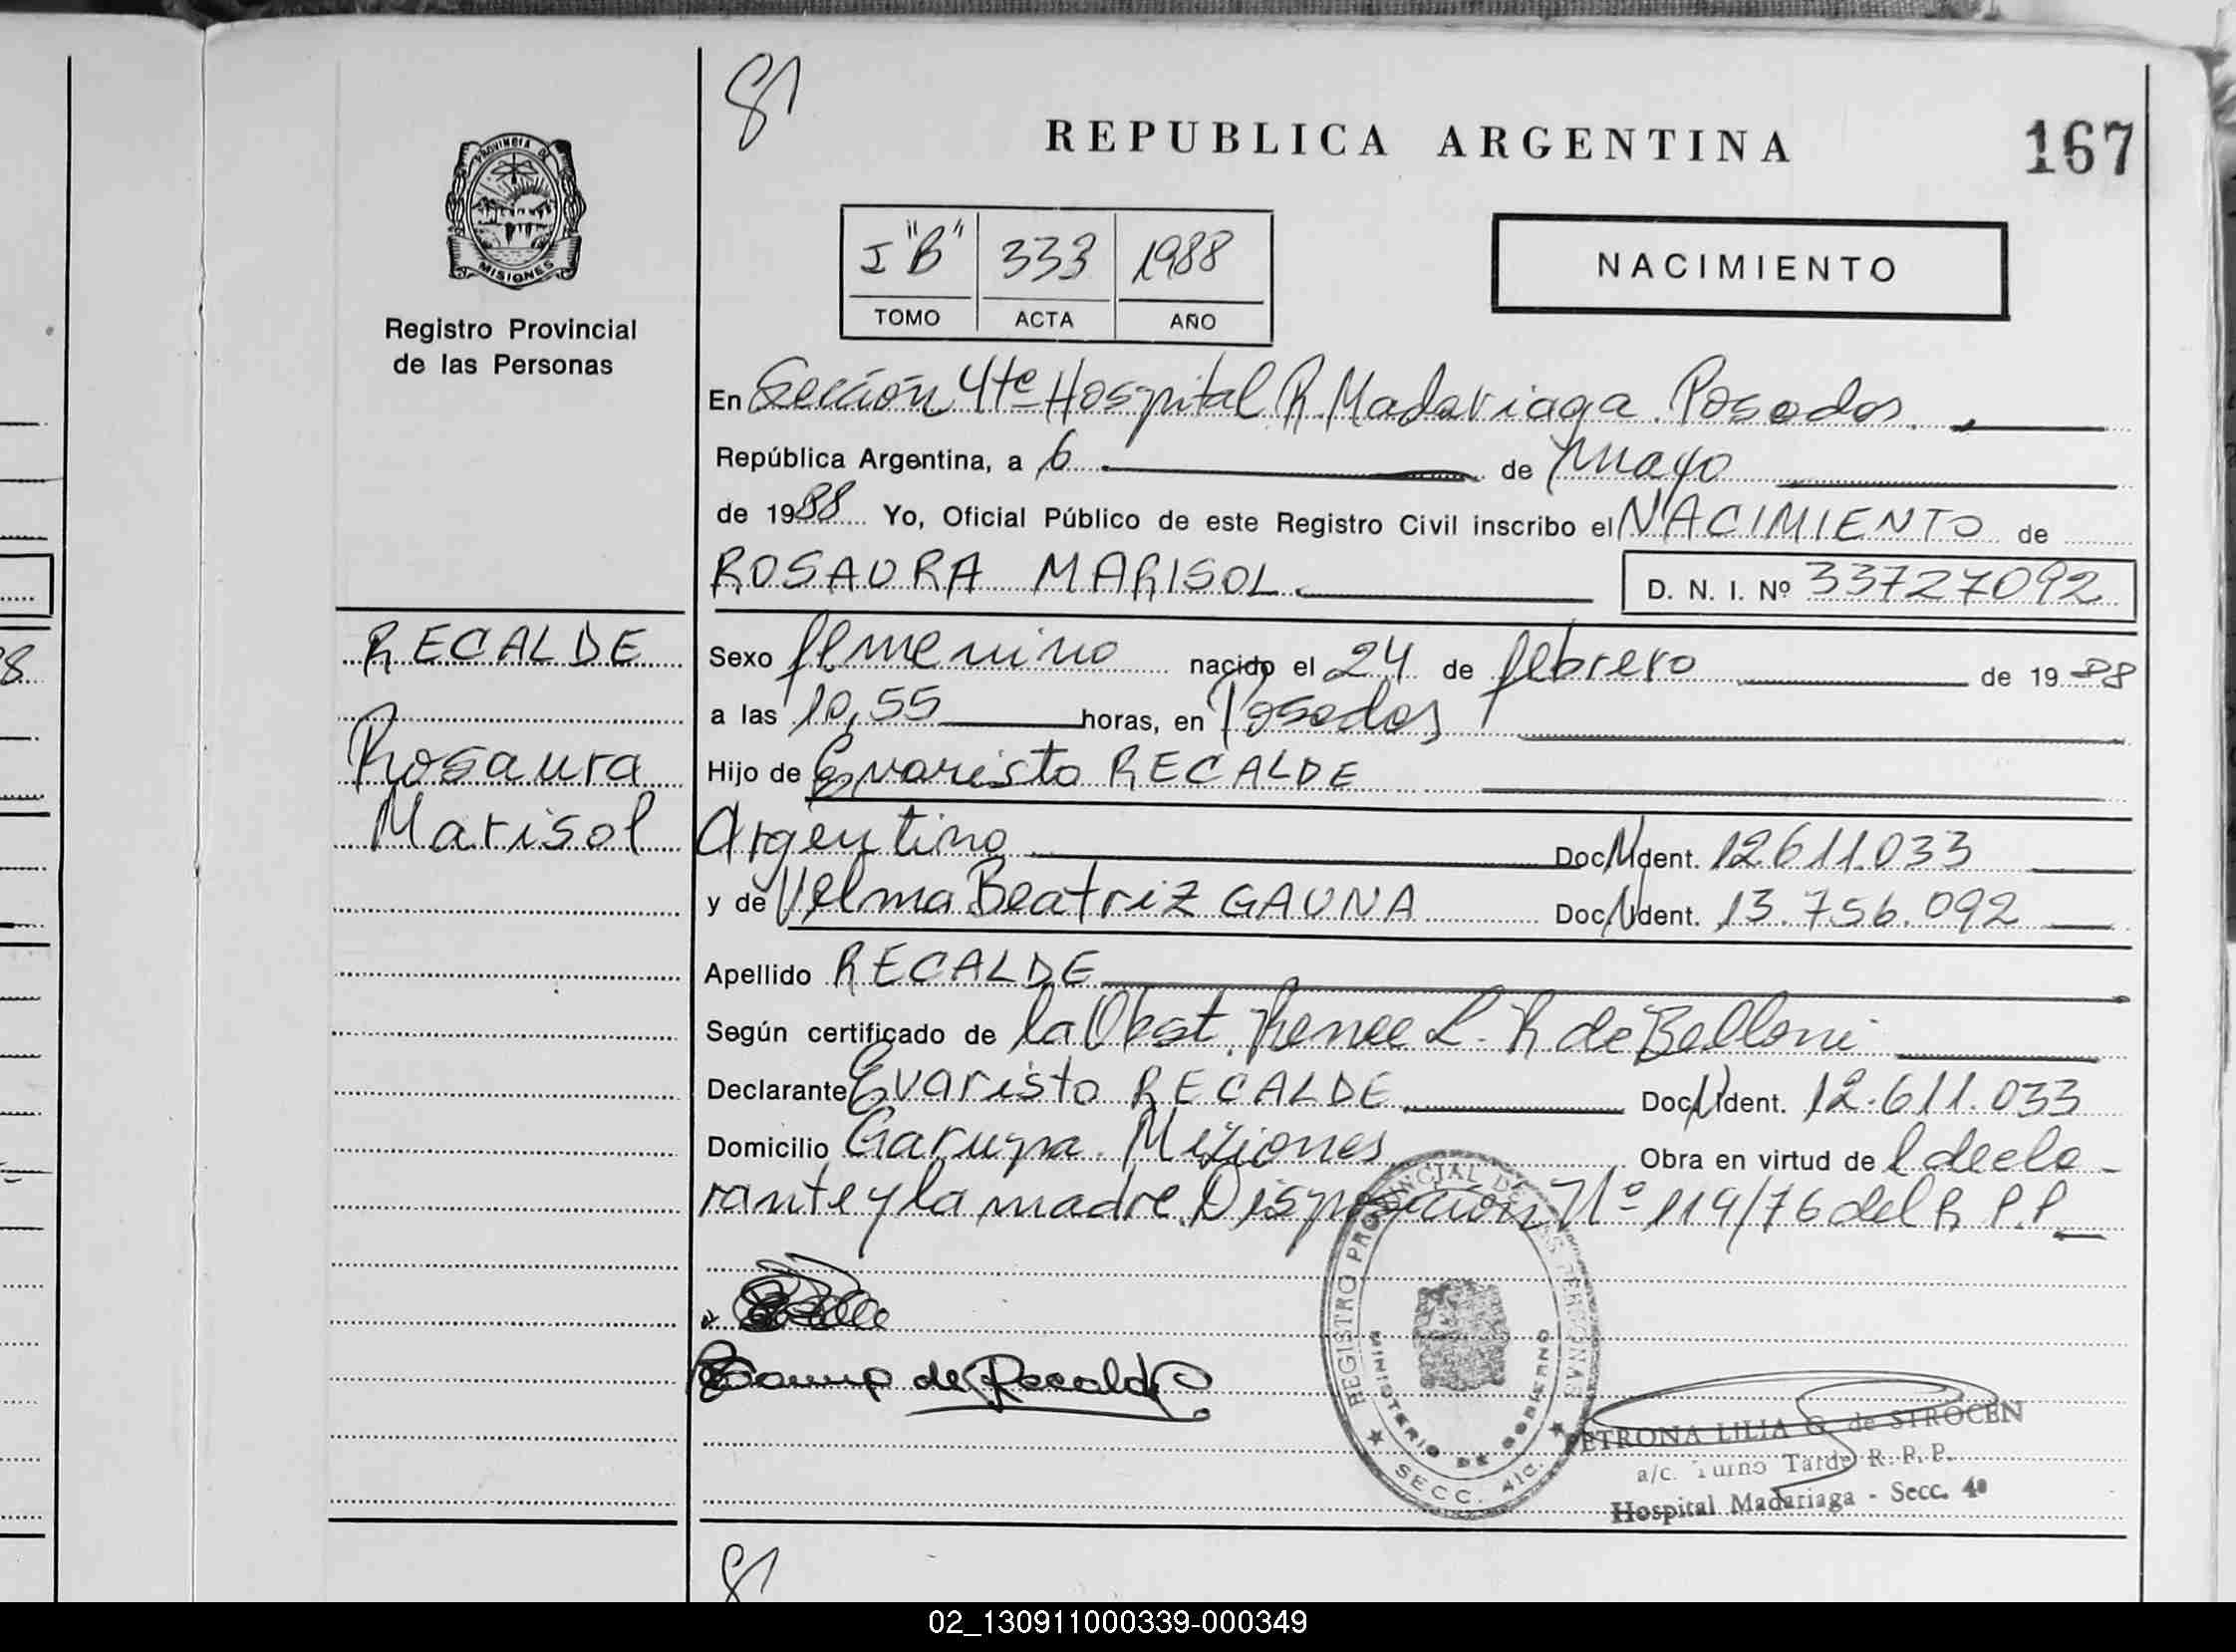 81
REPUBLICA ARGENTINA
167
PROVINCIA DE
MISIONES
Registro Provincial
de las Personas
I "B" 333 1988
TOMO ACTA AÑO
NACIMIENTO
En Sección 4te Hospital R. Madariaga. Posadas.
República Argentina, a 6 de mayo
de 1988 Yo, Oficial Público de este Registro Civil inscribo el NACIMIENTO de
ROSAURA MARISOL.
D. N. I. Nº 33727092
RECALDE
Rosaura
Marisol
Sexo femenino nacido el 24 de febrero de 1988
a las 10,55 horas, en Posadas
Hijo de Evaristo RECALDE
Argentino Doc. N Ident. 12.611.033
y de Velma Beatriz GAUNA Doc. N Ident. 13.756.092
Apellido RECALDE
Según certificado de la Obst. Renee L. R de Belloni
Declarante Evaristo RECALDE Doc. N Ident. 12.611.033
Domicilio Garupa. Misiones Obra en virtud de l decla-
rante y la madre. Disposición Nº 119/76 del R. P. P.
de Recalde
REGISTRO PROVINCIAL DE LAS PERSONAS
MINISTERIO DE GOBIERNO
SECC. 4ta.
PETRONA LILIA G. de STROCEN
a/c. Turno Tarde R. P. P.
Hospital Madariaga - Secc. 4ª
81
02_130911000339-000349